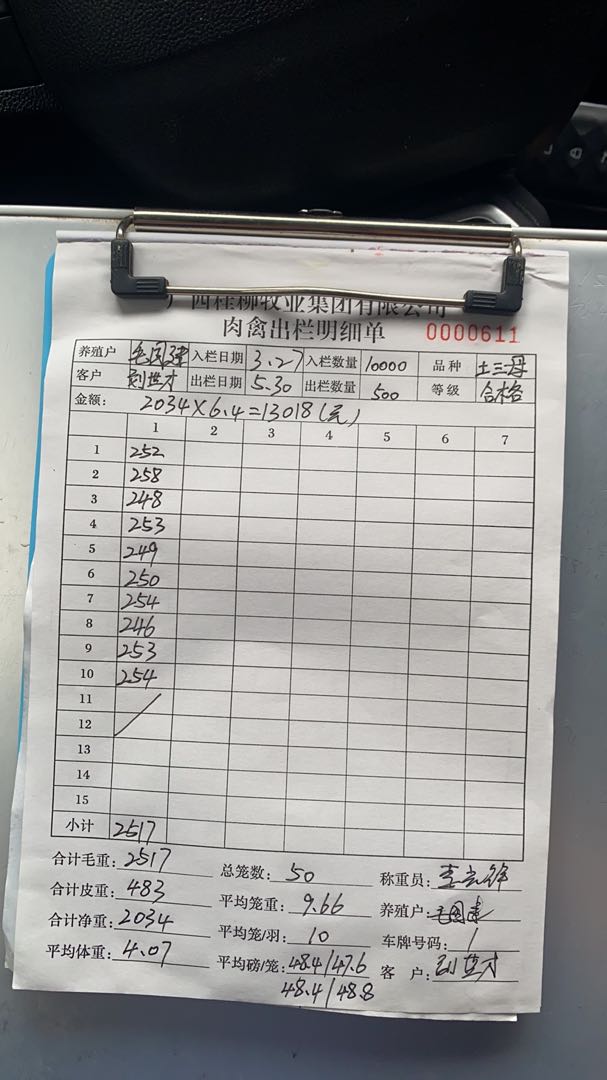 广西桂柳牧业集团有限公司
肉禽出栏明细单 0000611
养殖户 毛国建 入栏日期 3.27 入栏数量 10000 品种 土三母
客户 刘世才 出栏日期 5.30 出栏数量 500 等级 合格
金额: 2034×6.4=13018(元)
1 2 3 4 5 6 7
1 252
2 258
3 248
4 253
5 249
6 250
7 254
8 246
9 253
10 254
11
12
13
14
15
小计 2517
合计毛重: 2517 总笼数: 50 称重员:
合计皮重: 483 平均笼重: 9.66 养殖户: 毛国建
合计净重: 2034 平均笼/羽: 10 车牌号码: /
平均体重: 4.07 平均磅/笼: 48.4/47.6 客户: 刘世才
48.4/48.8